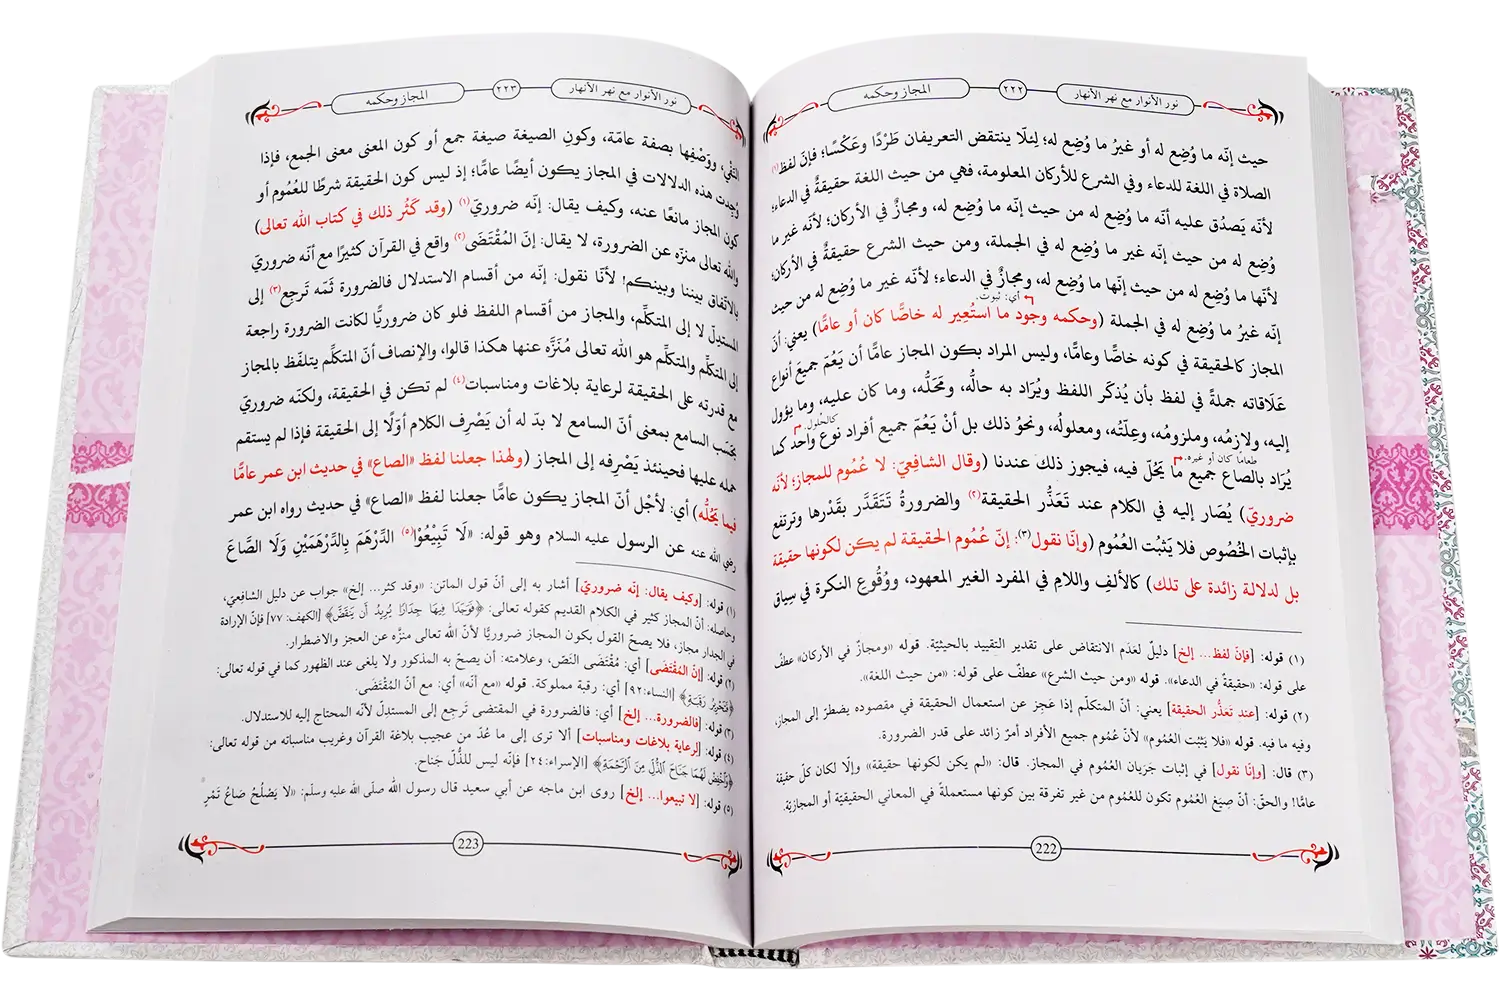 نور الأنوار مع نهر الأنهار ٢٢٢ المجاز وحكمه
حيث إنّه ما وُضِع له أو غيرُ ما وُضِع له؛ لِئلّا ينتقض التعريفان طَرْدًا وعَكْسًا؛ فإنّ لفظ(١)
الصلاة في اللغة للدعاء وفي الشرع للأركان المعلومة، فهي من حيث اللغة حقيقةٌ في الدعاء؛
لأنّه يَصدُق عليه أنّه ما وُضِع له من حيث إنّه ما وُضِع له، ومجازٌ في الأركان؛ لأنّه غير ما
وُضِع له من حيث إنّه غير ما وُضِع له في الجملة، ومن حيث الشرع حقيقةٌ في الأركان؛
لأنّها ما وُضِع له من حيث إنّها ما وُضِع له، ومجازٌ في الدعاء؛ لأنّه غير ما وُضِع له من حيث
أي: ثبوت.
إنّه غيرُ ما وُضِع له في الجملة (وحكمه وجود ما استُعِير له خاصًّا كان أو عامًّا) يعني: أنّ
المجاز كالحقيقة في كونه خاصًّا وعامًّا، وليس المراد بكون المجاز عامًّا أن يَعُمّ جميعَ أنواع
عَلَاقاته جملةً في لفظ بأن يُذكَر اللفظ ويُرَاد به حالُّه، ومَحَلُّه، وما كان عليه، وما يؤول
إليه، ولازِمُه، وملزومُه، وعِلّتُه، ومعلولُه، ونحوُ ذلك بل أنْ يَعُمّ جميع أفراد نوع واحد كما
كالحُلول.
طعامًا كان أو غيره.
يُرَاد بالصاع جميع ما يَحُلّ فيه، فيجوز ذلك عندنا (وقال الشافعيّ: لا عُمُوم للمجاز؛ لأنّه
ضروريّ) يُصَار إليه في الكلام عند تَعَذُّر الحقيقة(٢) والضرورةُ تَتَقَدَّر بقَدْرها وترتفع
بإثبات الخُصُوص فلا يَثبُت العُمُوم (وإنّا نقول(٣): إنّ عُمُوم الحقيقة لم يكن لكونها حقيقة
بل لدلالة زائدة على تلك) كالألفِ واللامِ في المفرد الغير المعهود، ووُقُوعِ النكرة في سِياق
(١) قوله: [فإنّ لفظ... إلخ] دليلٌ لعَدَم الانتقاض على تقدير التقييد بالحيثيّة. قوله «ومجازٌ في الأركان» عطفٌ
على قوله: «حقيقةٌ في الدعاء». قوله «ومن حيث الشرع» عطفٌ على قوله: «من حيث اللغة».
(٢) قوله: [عند تَعَذُّر الحقيقة] يعني: أنّ المتكلّم إذا عَجِز عن استعمال الحقيقة في مقصوده يضطرّ إلى المجاز،
وفيه ما فيه. قوله «فلا يَثبُت العُمُوم» لأنّ عُمُوم جميع الأفراد أمرٌ زائد على قدر الضرورة.
(٣) قال: [وإنّا نقول] في إثبات جَرَيان العُمُوم في المجاز. قال: «لم يكن لكونها حقيقة» وإلّا لكان كلّ حقيقة
عامًّا! والحقّ: أنّ صِيَغ العُمُوم تكون للعُمُوم من غير تفرقة بين كونها مستعملةً في المعاني الحقيقيّة أو المجازيّة.
222
نور الأنوار مع نهر الأنهار ٢٢٣ المجاز وحكمه
النفْي، ووَصْفِها بصفة عامّة، وكونِ الصيغة صيغة جمع أو كون المعنى معنى الجمع، فإذا
وُجِدت هذه الدلالات في المجاز يكون أيضًا عامًّا؛ إذ ليس كون الحقيقة شرطًا للعُمُوم أو
كون المجاز مانعًا عنه، وكيف يقال: إنّه ضروريّ(١) (وقد كَثُر ذلك في كتاب الله تعالى)
والله تعالى منزّه عن الضرورة، لا يقال: إنّ المُقْتَضَى(٢) واقع في القرآن كثيرًا مع أنّه ضروريّ
بالاتّفاق بيننا وبينكم! لأنّا نقول: إنّه من أقسام الاستدلال فالضرورة ثَمّه تَرجِع(٣) إلى
المستدِلّ لا إلى المتكلِّم، والمجاز من أقسام اللفظ فلو كان ضروريًّا لكانت الضرورة راجعة
إلى المتكلِّم والمتكلِّم هو الله تعالى مُنَزَّه عنها هكذا قالوا، والإنصاف أنّ المتكلِّم يتلفّظ بالمجاز
مع قدرته على الحقيقة لرعاية بلاغات ومناسبات(٤) لم تكن في الحقيقة، ولكنّه ضروريّ
بحَسَب السامع بمعنى أنّ السامع لا بدّ له أن يَصْرِف الكلام أوّلًا إلى الحقيقة فإذا لم يستقم
حمله عليها فحينئذ يَصْرِفه إلى المجاز (ولهذا جعلنا لفظ «الصاع» في حديث ابن عمر عامًّا
فيما يَحُلُّه) أي: لأجْل أنّ المجاز يكون عامًّا جعلنا لفظ «الصاع» في حديث رواه ابن عمر
رضي الله عنه عن الرسول عليه السلام وهو قوله: «لَا تَبِيْعُوْا(٥) الدِّرْهَم بِالدِّرْهَمَيْنِ وَلَا الصَّاعَ
(١) قوله: [وكيف يقال: إنّه ضروريّ] أشار به إلى أنّ قول الماتن: «وقد كثر... إلخ» جواب عن دليل الشافعيّ،
وحاصله: أنّ المجاز كثير في الكلام القديم كقوله تعالى: ﴿فَوَجَدَا فِيهَا جِدَارًا يُرِيدُ أَن يَنقَضَّ﴾ [الكهف: ٧٧] فإنّ الإرادة
في الجدار مجاز، فلا يصحّ القول بكون المجاز ضروريًّا لأنّ الله تعالى منزّه عن العجز والاضطرار.
(٢) قوله: [إنّ المُقْتَضَى] أي: مُقْتَضَى النَصّ، وعلامته: أن يصحّ به المذكور ولا يلغى عند الظهور كما في قوله تعالى:
﴿فَتَحْرِيرُ رَقَبَةٍ﴾ [النساء:٩٢] أي: رقبة مملوكة. قوله «مع أنّه» أي: مع أنّ المُقْتَضَى.
(٣) قوله: [فالضرورة... إلخ] أي: فالضرورة في المقتضى تَرجِع إلى المستدِلّ لأنّه المحتاج إليه للاستدلال.
(٤) قوله: [لرعاية بلاغات ومناسبات] ألا ترى إلى ما عُدّ من عجيب بلاغة القرآن وغريب مناسباته من قوله تعالى:
﴿وَٱخْفِضْ لَهُمَا جَنَاحَ ٱلذُّلِّ مِنَ ٱلرَّحْمَةِ﴾ [الإسراء:٢٤] فإنّه ليس للذُّلّ جَناح.
(٥) قوله: [لا تبيعوا... إلخ] روى ابن ماجه عن أبي سعيد قال رسول الله صلّى الله عليه وسلّم: «لَا يَصْلُحُ صَاعُ تَمْرٍ
223